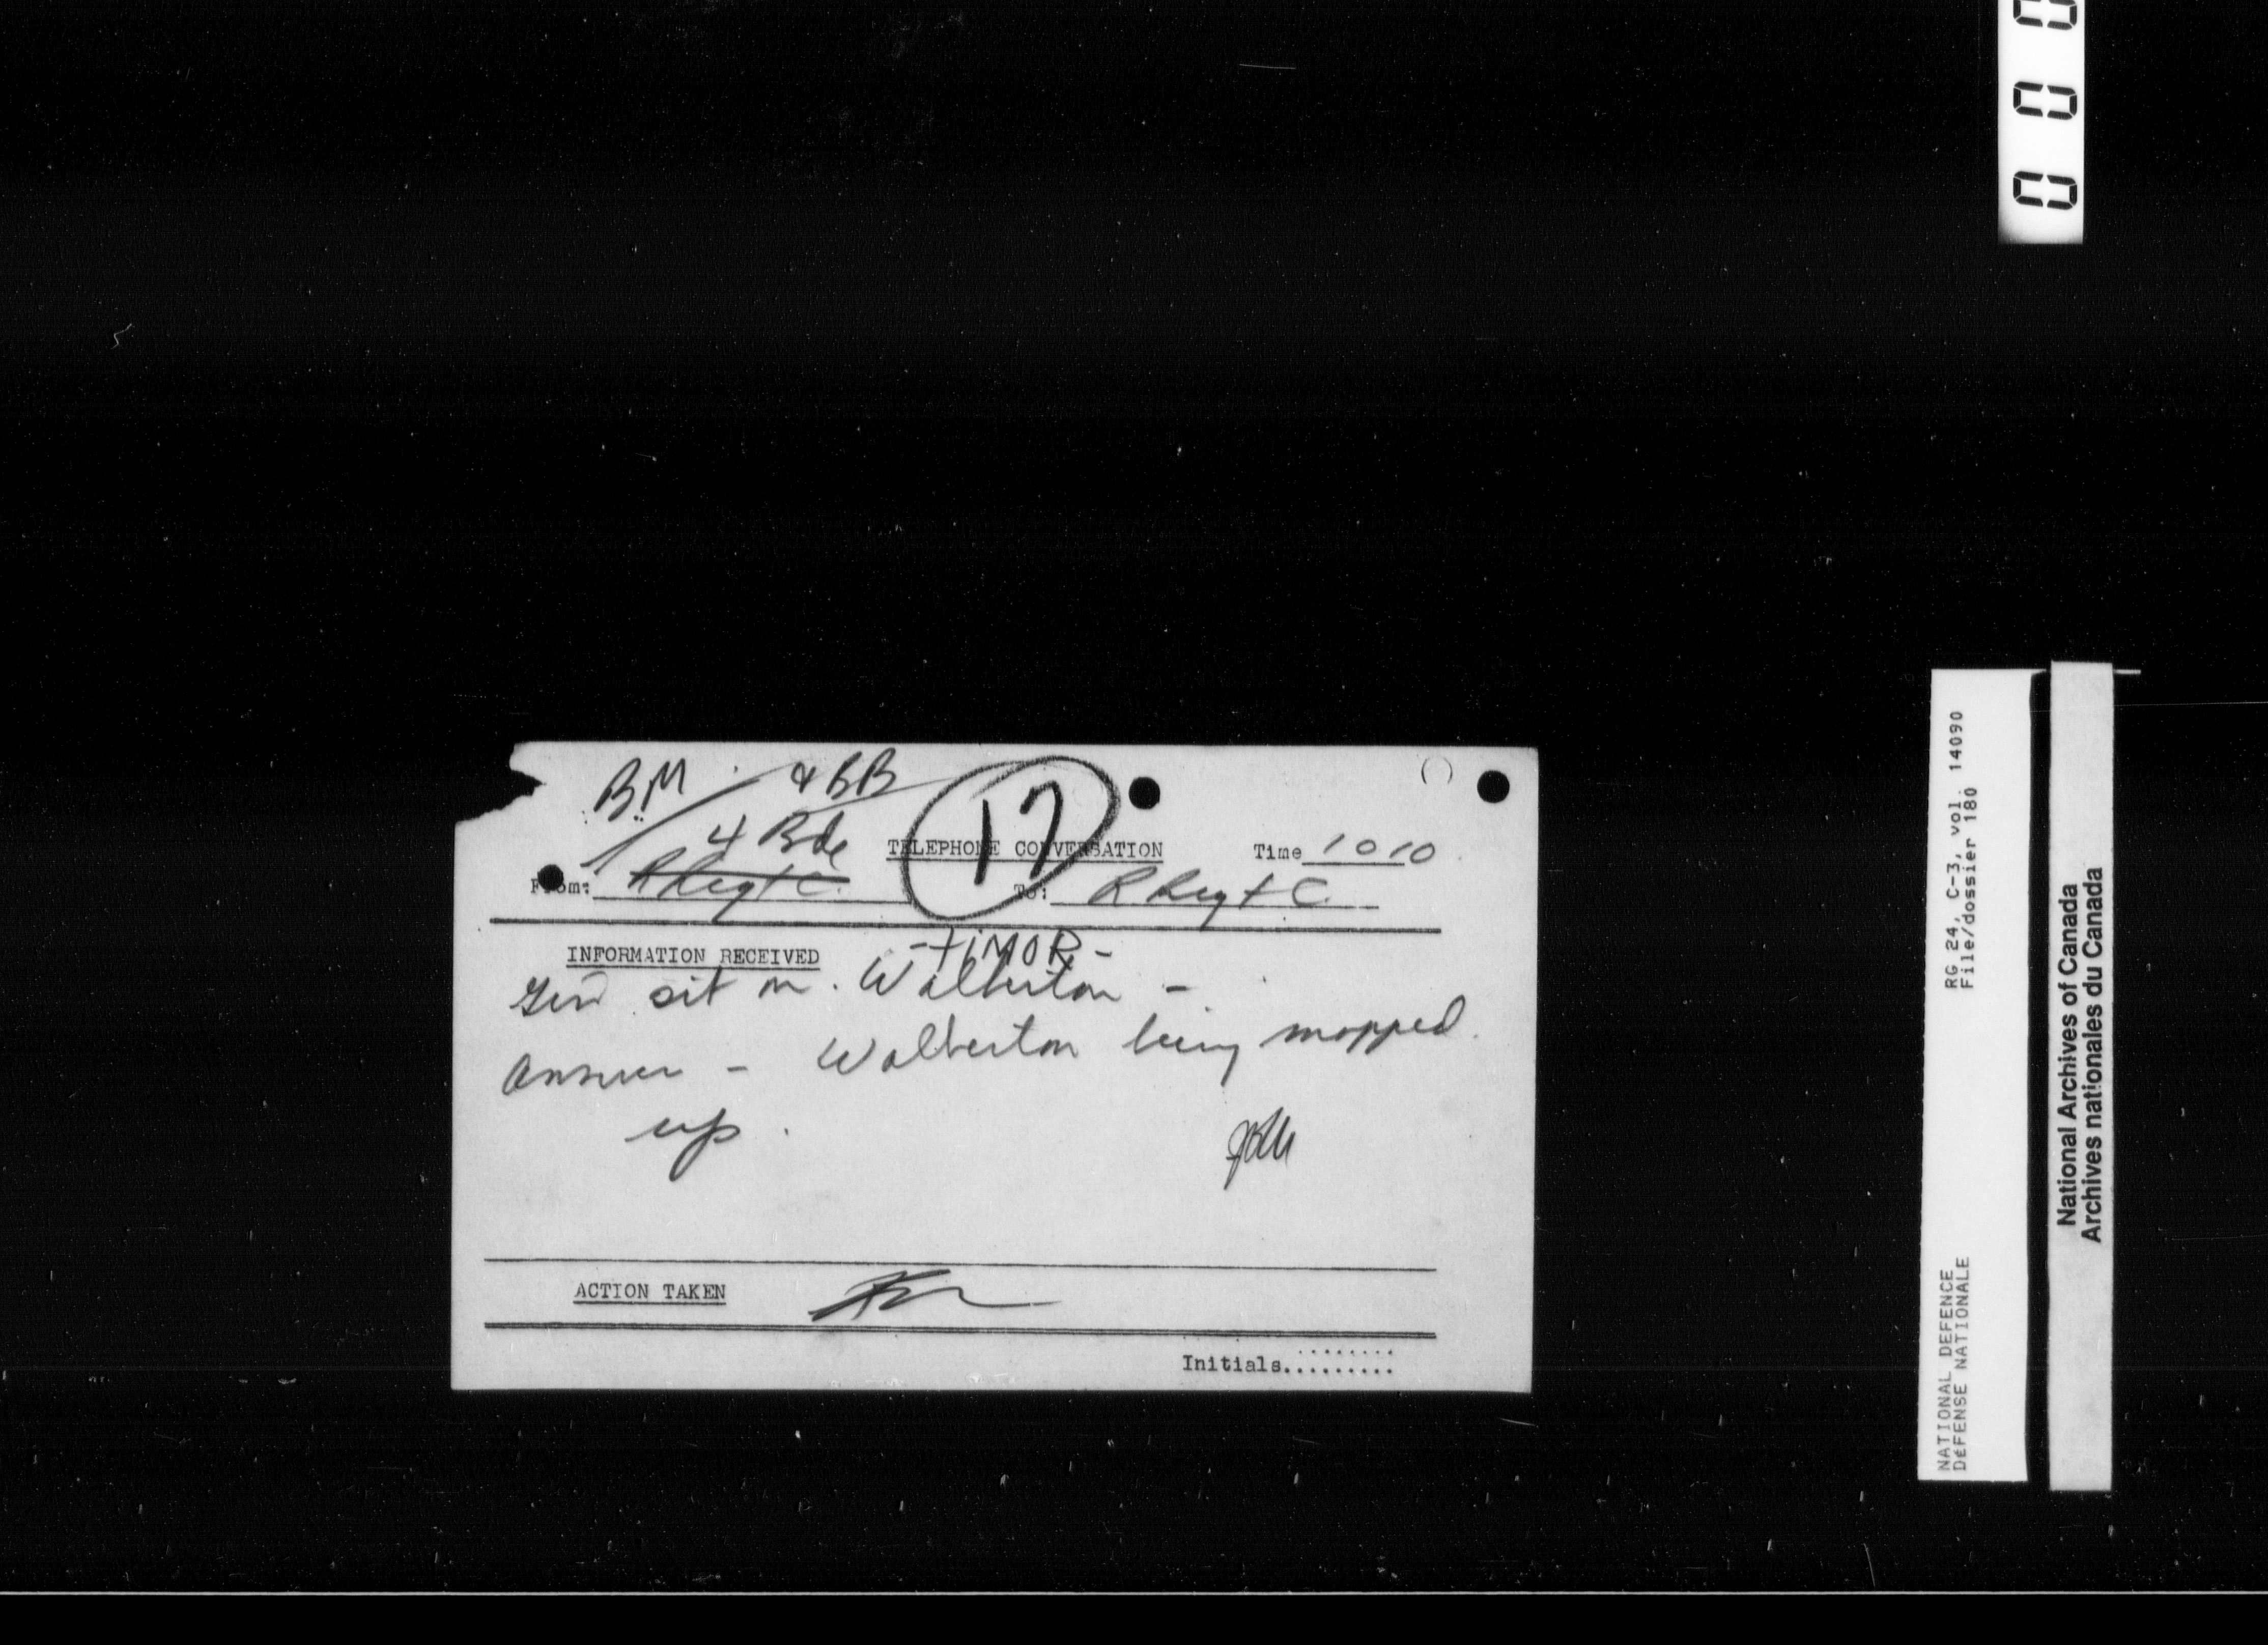 0 0 0
B.M 4 BB
17
4 Bde
TELEPHONE CONVERSATION Time 1010
From: R Regt C. To: R Regt C.
-TIMOR-
INFORMATION RECEIVED
sit on. Walberton -
Answer - Walberton being mopped
up.
ACTION TAKEN
Initials.........
RG 24, C-3, vol. 14090
File/dossier 180
NATIONAL DEFENCE
DÉFENSE NATIONALE
National Archives of Canada
Archives nationales du Canada